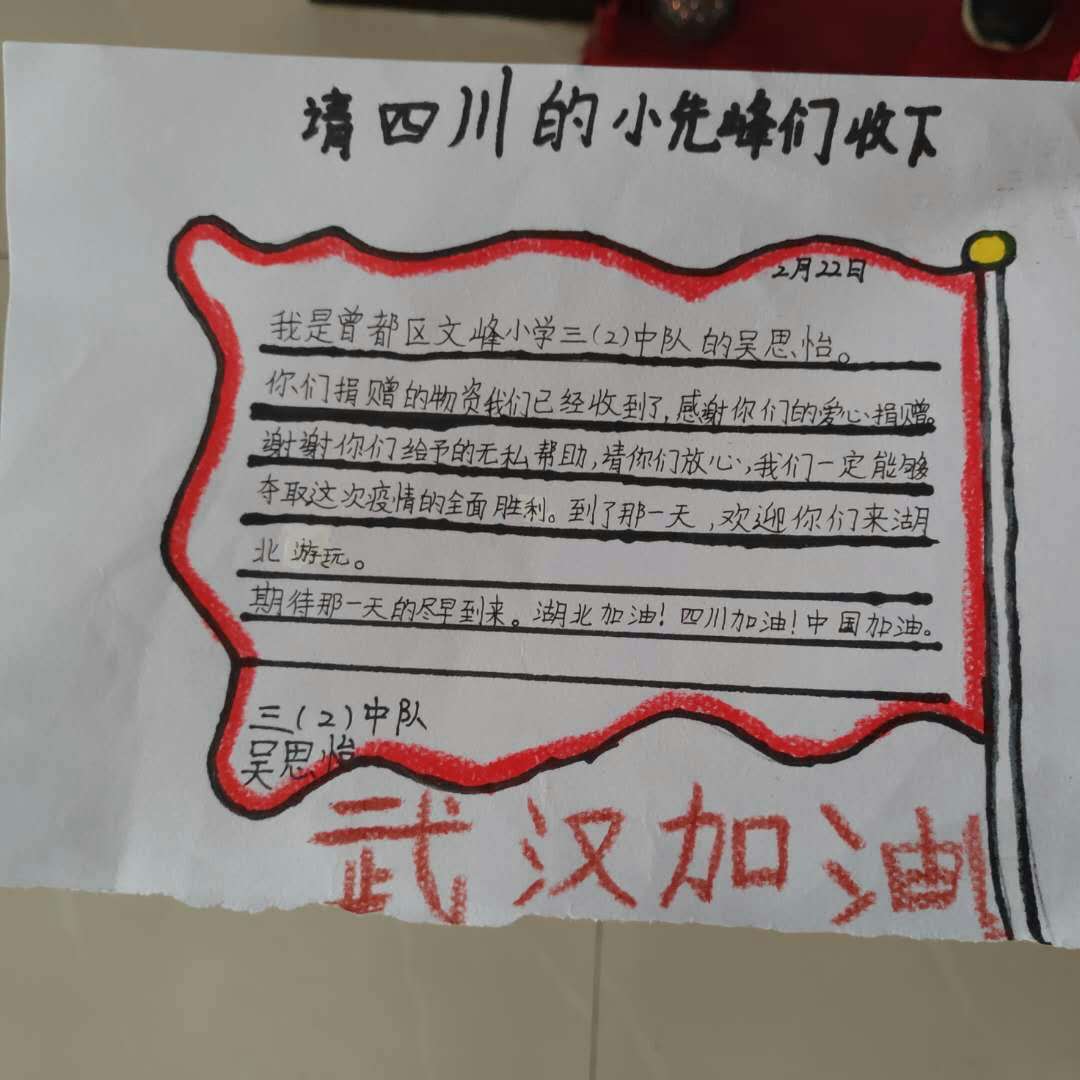 请四川的小先峰们收下
2月22日
我是曾都区文峰小学三(2)中队的吴思怡。
你们捐赠的物资我们已经收到了,感谢你们的爱心捐赠。
谢谢你们给予的无私帮助,请你们放心,我们一定能够
夺取这次疫情的全面胜利。到了那一天,欢迎你们来湖
北游玩。
期待那一天的尽早到来。湖北加油!四川加油!中国加油。
三(2)中队
吴思怡
武汉加油